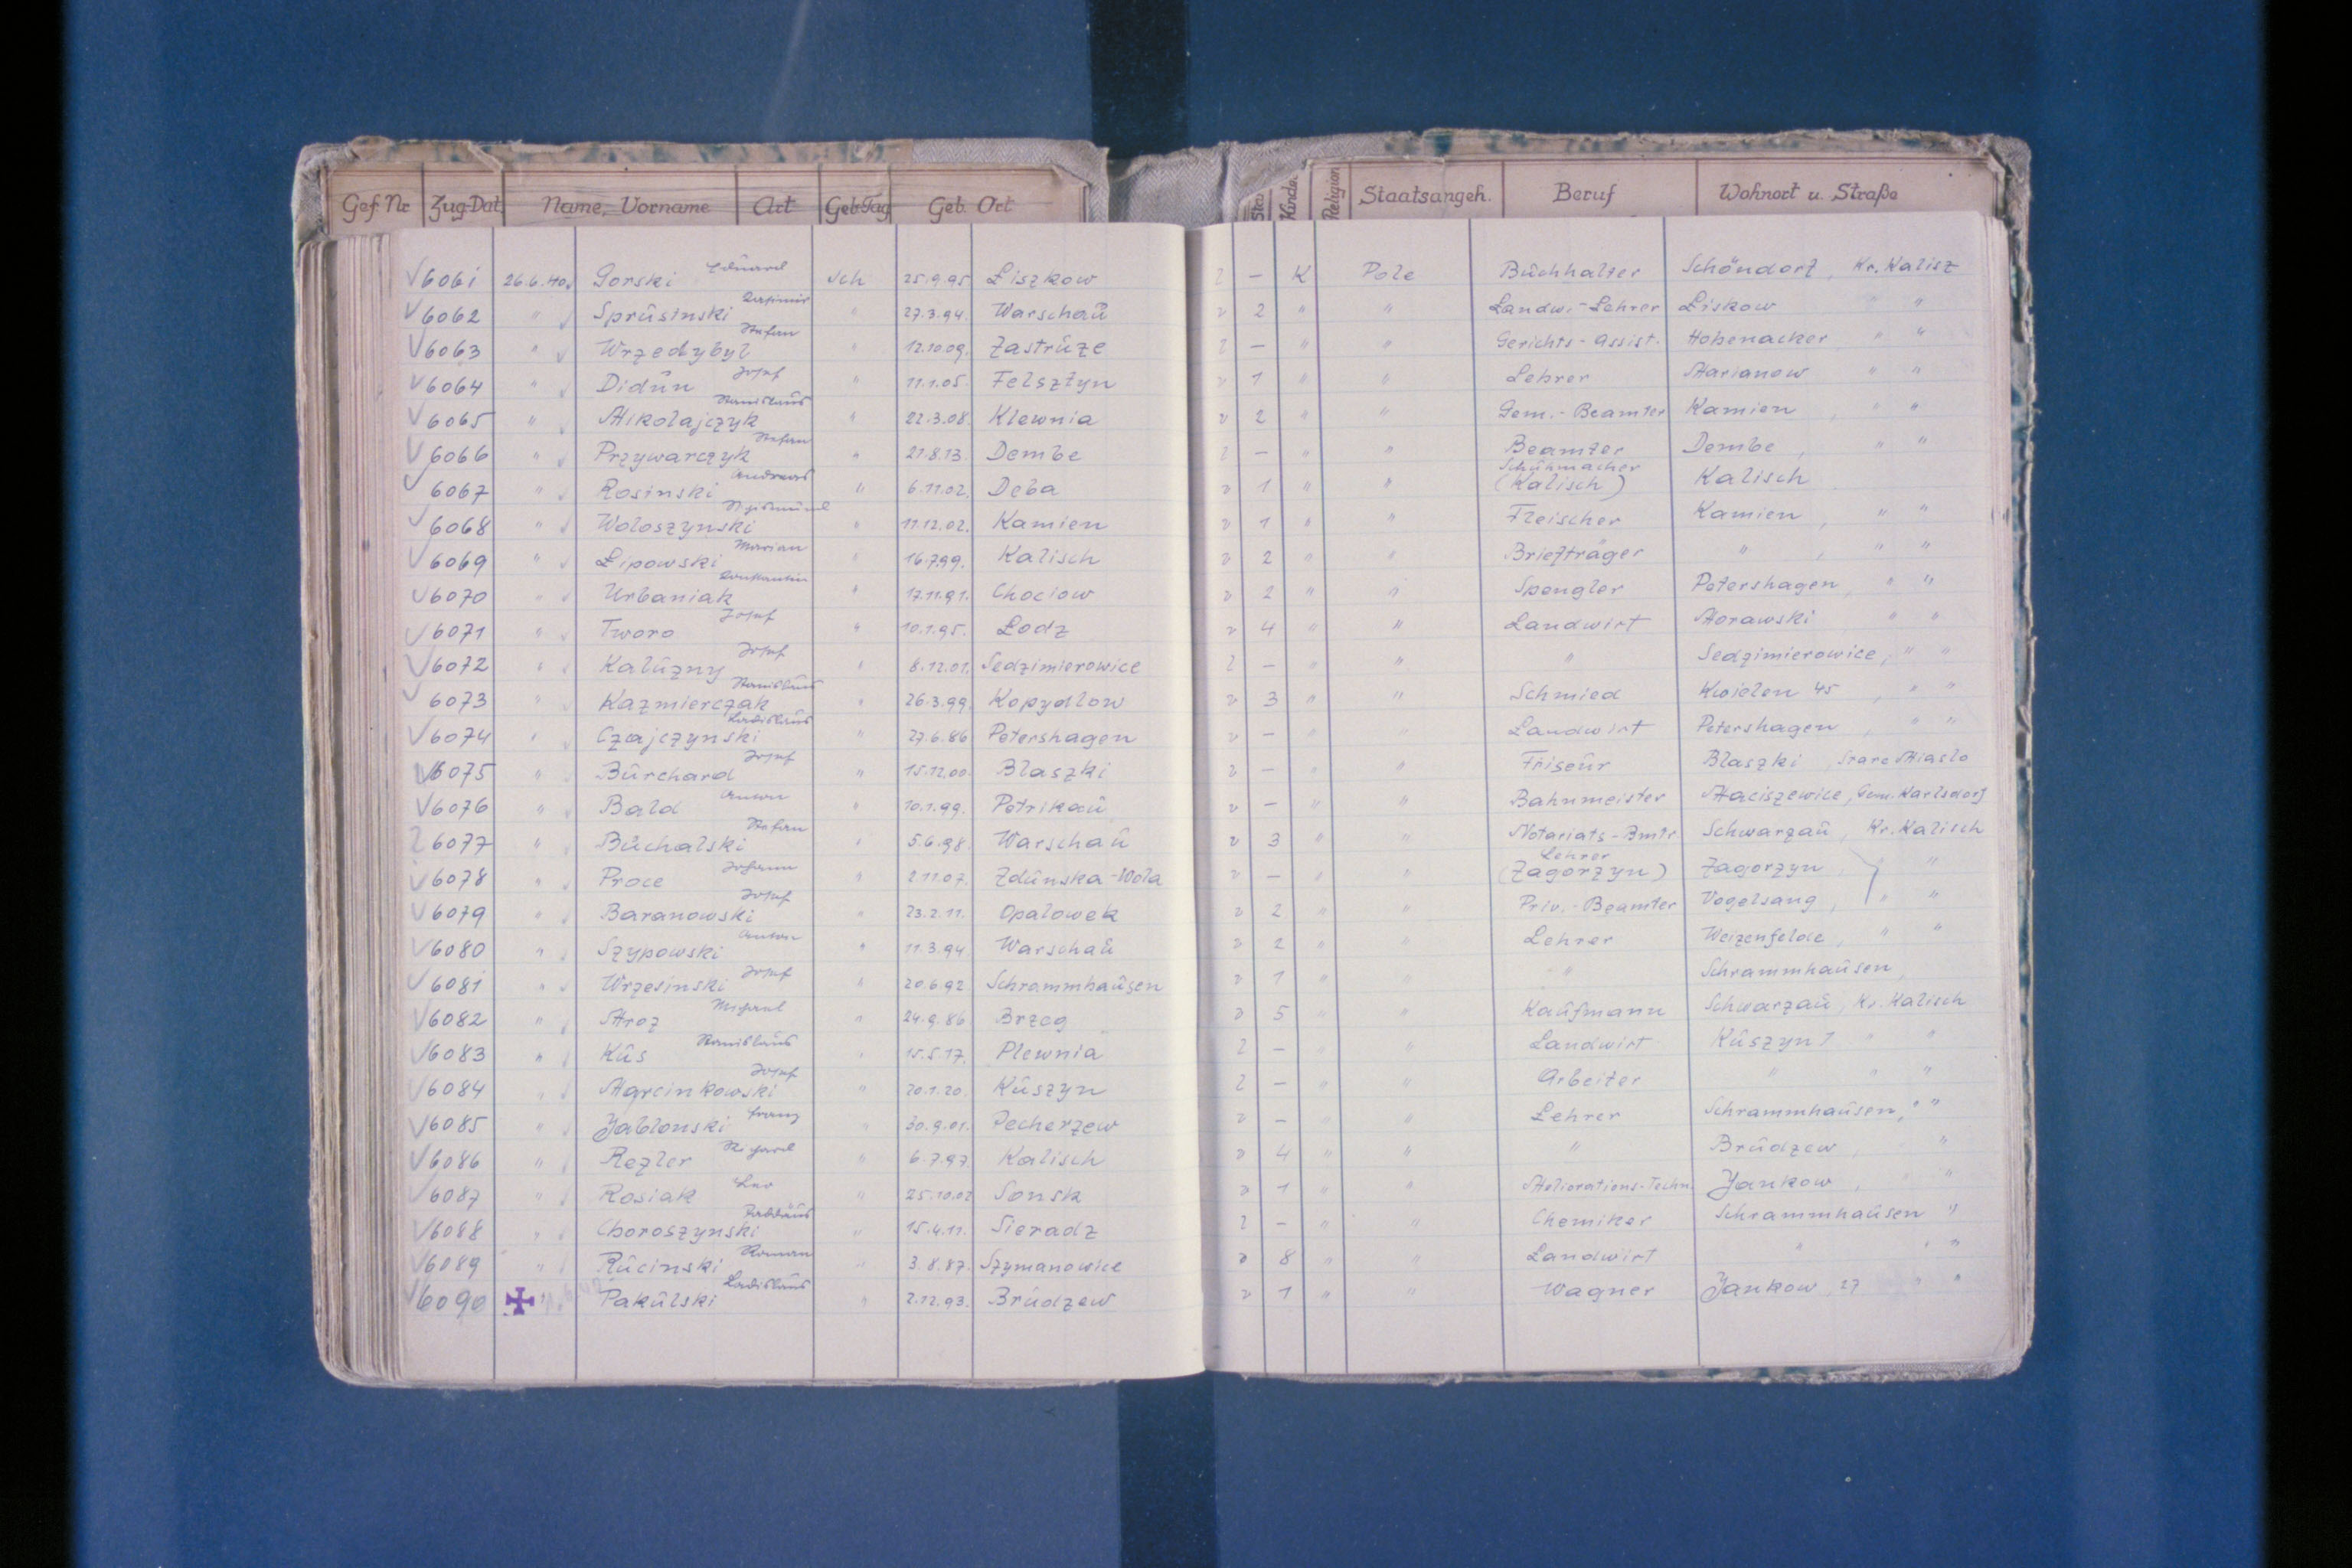 Gef. Nr Zug-Dat. Name, Vorname Art Geb-Tag Geb. Ort Kinder Religion Staatsangeh. Beruf Wohnort u. Straße
6061 26.6.40. Gorski Eduard Sch 25.9.95 Liszkow l — K Pole Buchhalter Schöndorf, Kr. Kalisz
6062 " Sprusinski Kasimir " 27.3.94. Warschau v 2 " " Landw.-Lehrer Liskow " "
6063 " Wrzedybyl Stefan " 12.10.09. Zastruze l — " " Gerichts-Assist. Hohenacker " "
6064 " Didun Josef " 11.1.05. Felsztyn v 1 " " Lehrer Marianow " "
6065 " Mikolajczyk Stanislaus " 22.3.08. Klewnia v 2 " " Gem.-Beamter Kamien, " "
6066 " Przywarczyk Stefan " 21.8.13. Dembe l — " " Beamter Dembe, " "
6067 " Rosinski Andreas " 6.11.02. Deba v 1 " " Schuhmacher (Kalisch) Kalisch
6068 " Woloszynski Sigismund " 11.12.02. Kamien v 1 " " Fleischer Kamien, " "
6069 " Lipowski Marian " 16.7.99. Kalisch v 2 " " Briefträger " , " "
6070 " Urbaniak Konstantin " 17.11.91. Chociow v 2 " " Spengler Petershagen, " "
6071 " Tworo Josef " 10.1.95. Lodz v 4 " " Landwirt Morawski " "
6072 " Kaluzny Josef " 8.12.01. Sedzimierowice l — " " " Sedzimierowice, " "
6073 " Kazmierczak Stanislaus " 26.3.99. Kopydlow v 3 " " Schmied Kwielen 45, " "
6074 " Czajczynski Ladislaus " 27.6.86 Petershagen v — " " Landwirt Petershagen, " "
6075 " Burchard Josef " 15.12.00. Blaszki v — " " Friseur Blaszki, Stare Miasto
6076 " Bald Anton " 10.1.99. Petrikau v — " " Bahnmeister Maciszewice, Gem. Karlsdorf
6077 " Buchalski Stefan " 5.6.98. Warschau v 3 " " Notariats-Bmtr. Schwarzau, Kr. Kalisch
6078 " Proce Johann " 2.11.07. Zdunska-Wola v — " " Lehrer (Zagorzyn) Zagorzyn, } " "
6079 " Baranowski Josef " 23.2.11. Opalowek v 2 " " Priv.-Beamter Vogelsang, " "
6080 " Szypowski Anton " 11.3.94 Warschau v 2 " " Lehrer Weizenfelde, " "
6081 " Wrzesinski Josef " 20.6.92. Schrammhausen v 1 " " " Schrammhausen,
6082 " Mroz Michael " 24.9.86 Brzeg v 5 " " Kaufmann Schwarzau, Kr. Kalisch
6083 " Kus Stanislaus " 15.5.17. Plewnia l — " " Landwirt Kuszyn 1 " "
6084 " Marcinkowski Josef " 20.1.20. Kuszyn l — " " Arbeiter " " "
6085 " Jablonski Franz " 30.9.01. Pecherzew v — " " Lehrer Schrammhausen, " "
6086 " Rezler Richard " 6.7.97. Kalisch v 4 " " " Brudzew, "
6087 " Rosiak Leo " 25.10.02 Sonsk v 1 " " Meliorations-Techn. Jankow, " "
6088 " Choroszynski Taddäus " 15.4.11. Sieradz l — " " Chemiker Schrammhausen "
6089 " Rucinski Roman " 3.8.87. Szymanowice v 8 " " Landwirt " " "
6090 " Pakulski Ladislaus " 2.12.93. Brudzew v 1 " " Wagner Jankow 27 " "